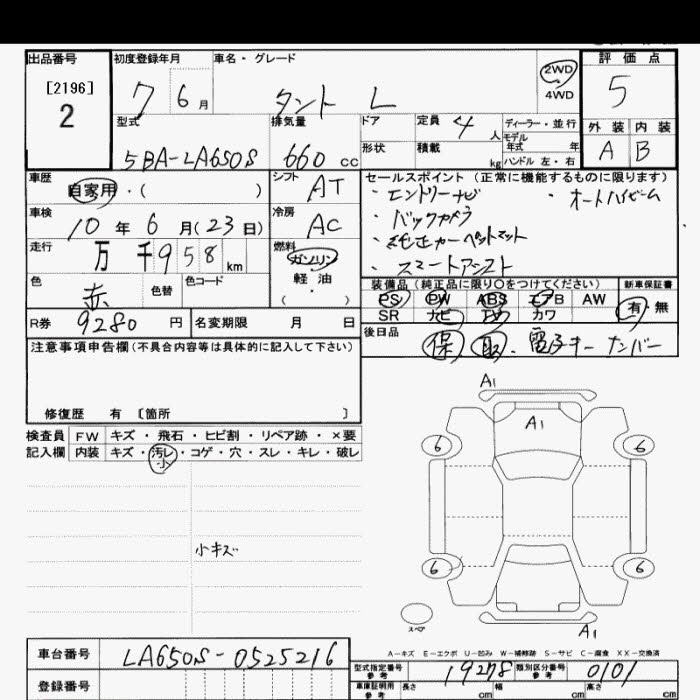 出品番号
[2196]
2
初度登録年月
7 6 月
車名・グレード
タント L
2WD
4WD
評価点
5
外装 内装
A B
型式
5BA-LA650S
排気量
660 cc
ドア
形状
定員 4 人
積載 kg
ディーラー・並行
モデル
年式 年
ハンドル 左・右
車歴
自家用・( )
シフト
AT
車検
10 年 6 月(23 日)
冷房
AC
走行
万 千 958 km
燃料
ガソリン
軽油
( ・ )
色
赤
色替
色コード
R券 9280 円
名変期限 月 日
セールスポイント(正常に機能するものに限ります)
・エントリーナビ ・オートハイビーム
・バックカメラ
・純正カーペットマット
・スマートアシスト
装備品(純正品に限り〇をつけてください)
新車保証書
PS PW ABS エアB AW
SR ナビ TV カワ
有・無
後日品
保 取 . 電子キー ナンバー
注意事項申告欄(不具合内容等は具体的に記入して下さい)
修復歴 有 〔箇所 〕
検査員
記入欄
FW キズ・飛石・ヒビ割・リペア跡・×要
内装 キズ・汚レ・コゲ・穴・スレ・キレ・破レ
小
小キズ
A1
A1
6 6
6 6
スペア
A1
A-キズ E-エクボ U-凹み W-補修跡 S-サビ C-腐食 XX-交換済
車台番号
LA650S-0525216
登録番号
型式指定番号
参考
19278
類別区分番号
参考
0101
車庫証明用
参考
長さ cm 幅 cm 高さ cm